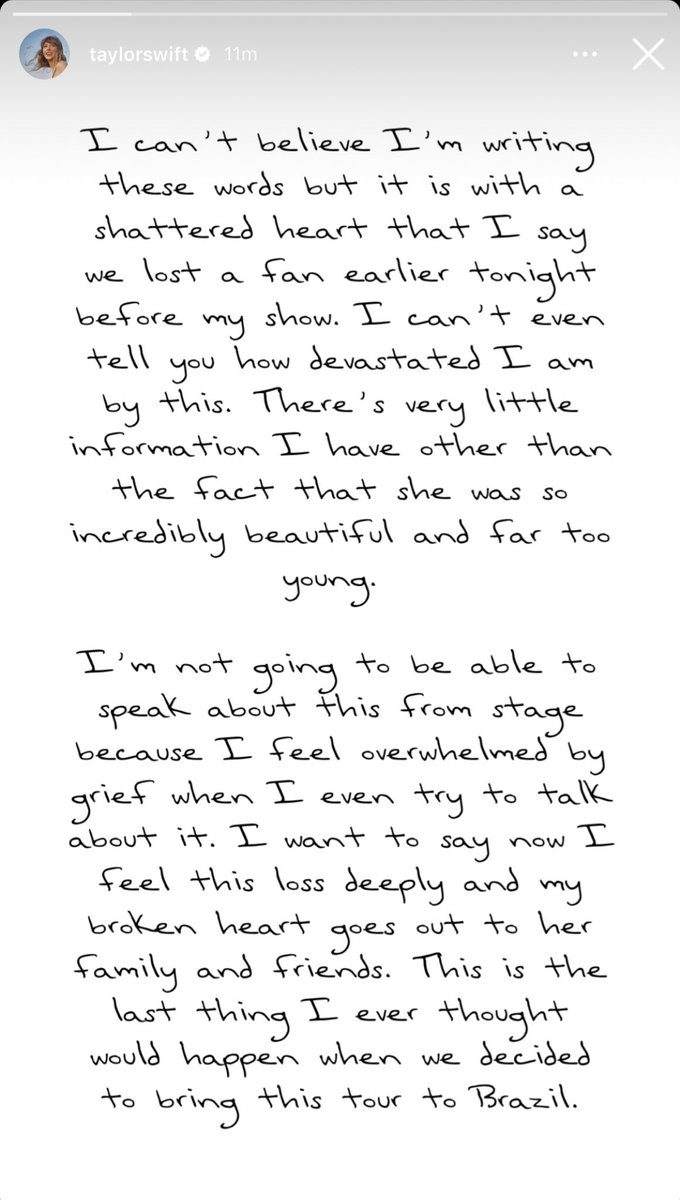 taylorswift 11m
I can't believe I'm writing
these words but it is with a
shattered heart that I say
we lost a fan earlier tonight
before my show. I can't even
tell you how devastated I am
by this. There's very little
information I have other than
the fact that she was so
incredibly beautiful and far too
young.
I'm not going to be able to
speak about this from stage
because I feel overwhelmed by
grief when I even try to talk
about it. I want to say now I
feel this loss deeply and my
broken heart goes out to her
family and friends. This is the
last thing I ever thought
would happen when we decided
to bring this tour to Brazil.